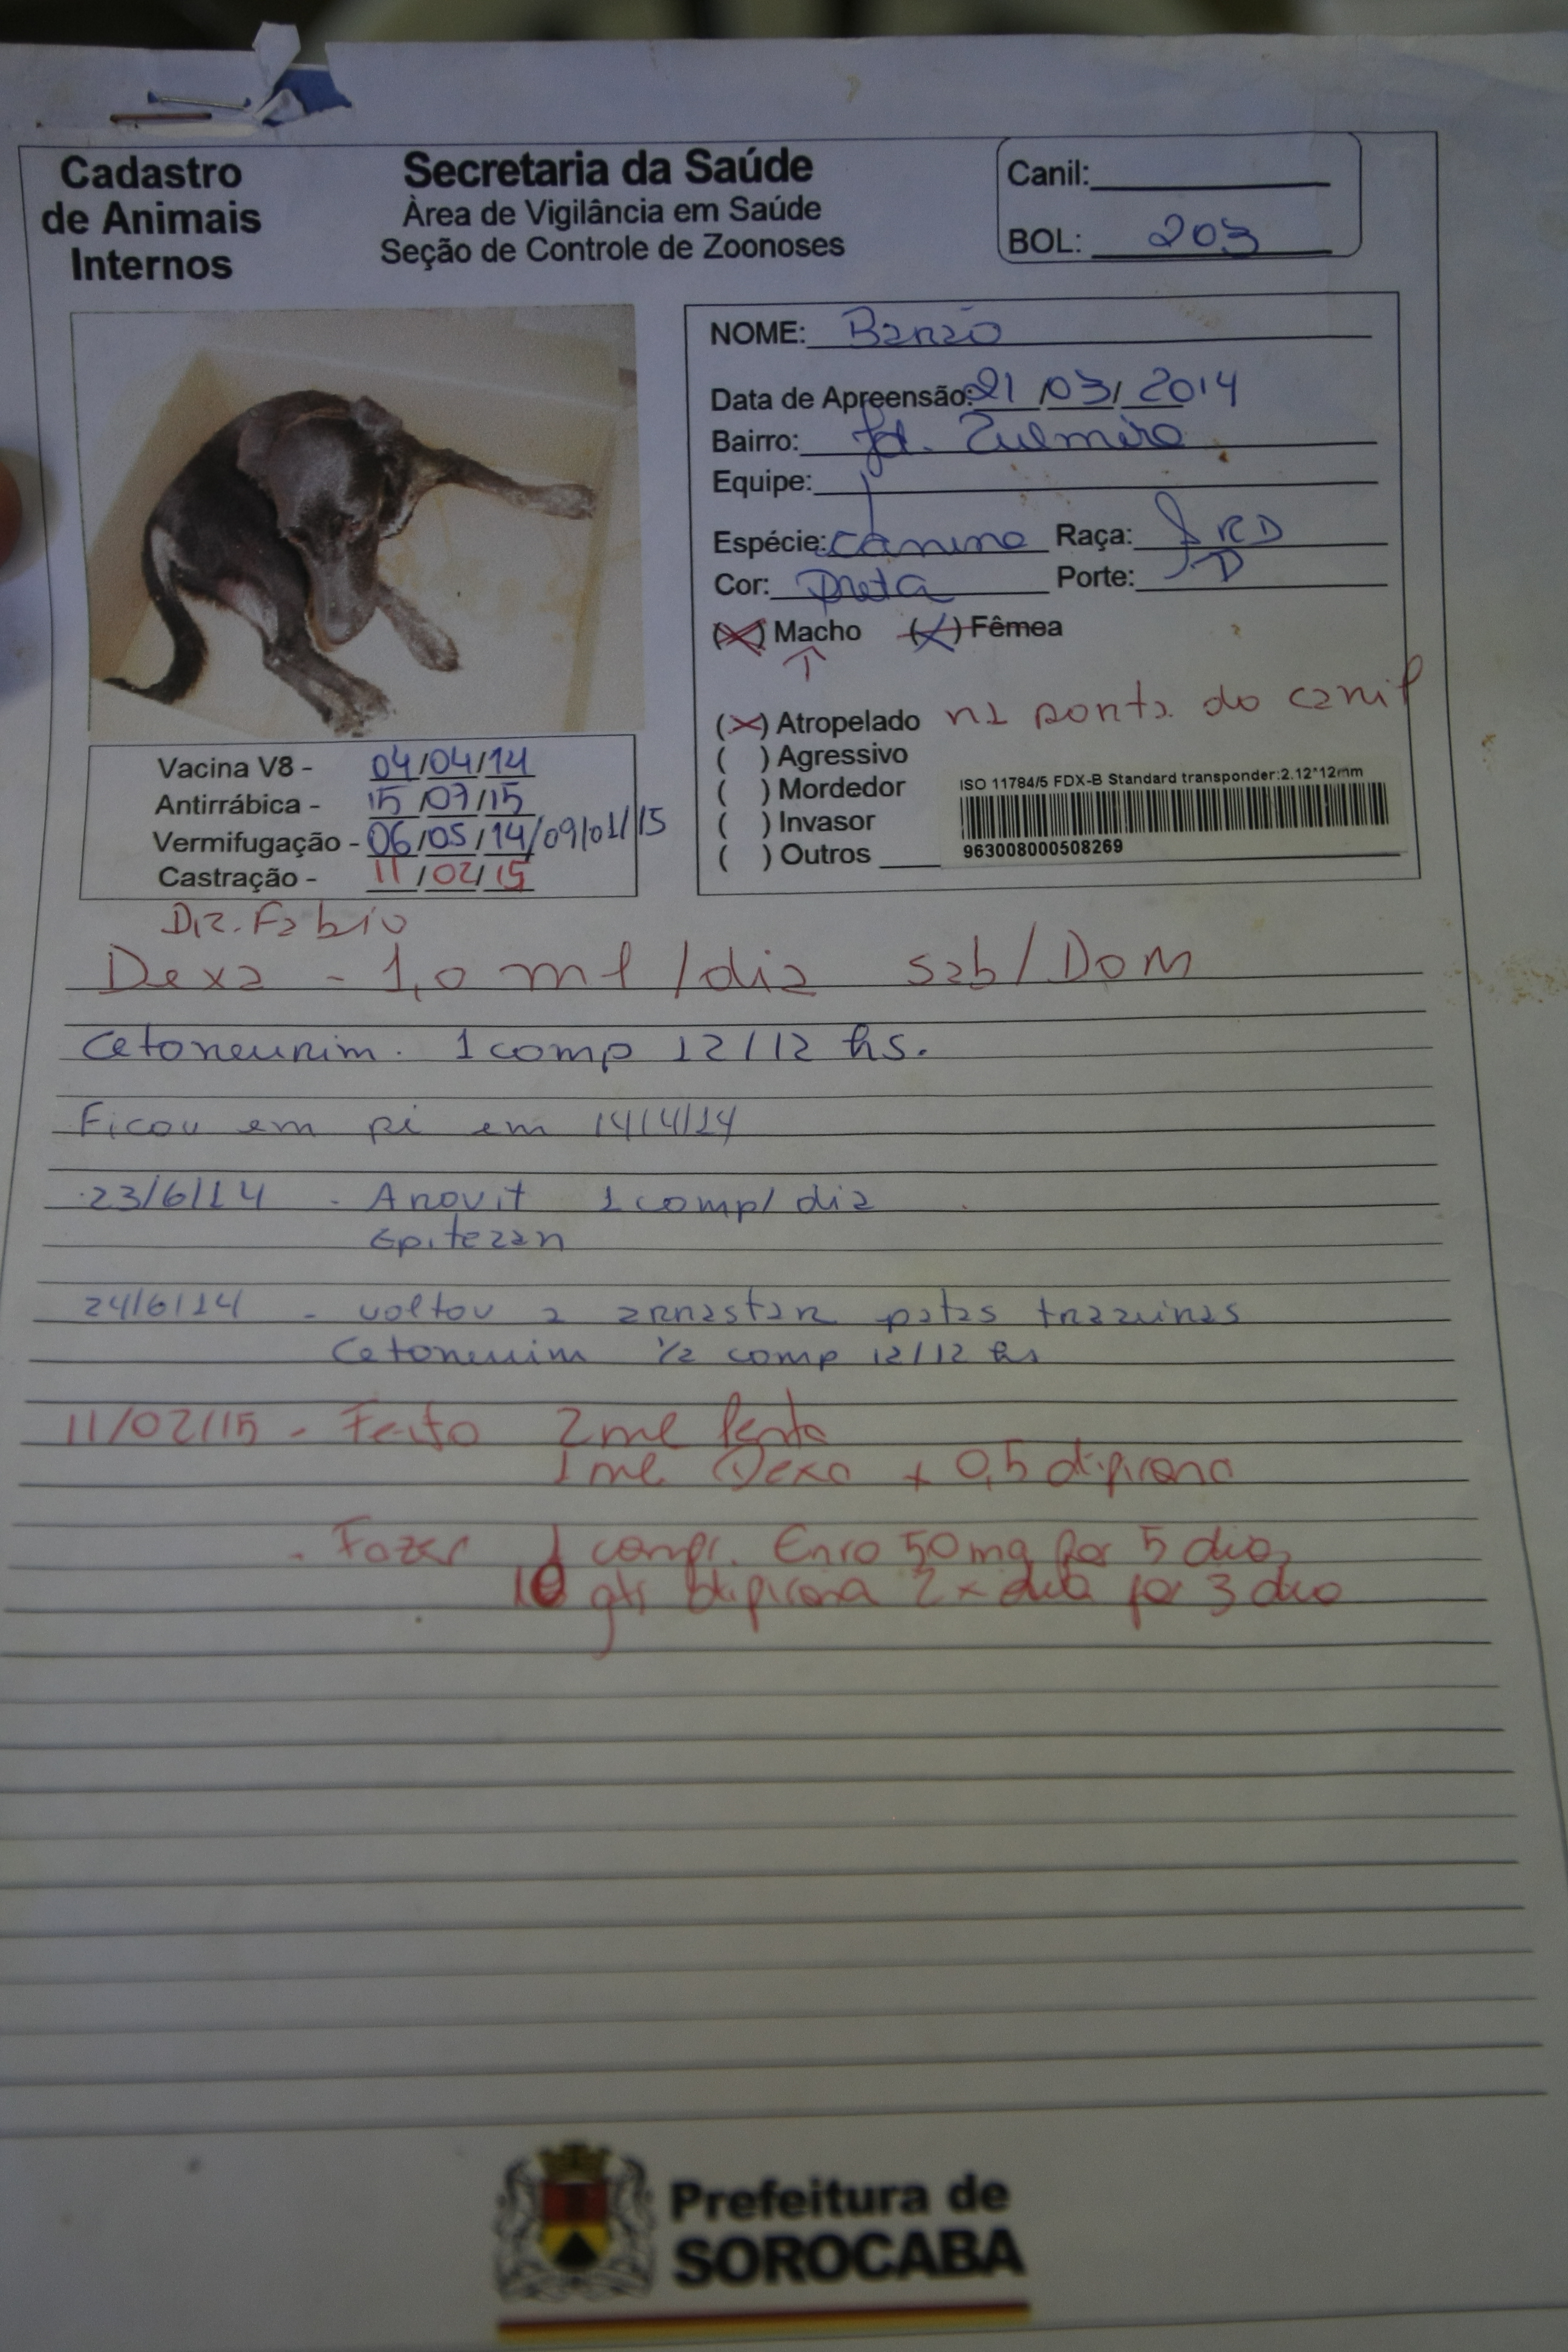 Cadastro
de Animais
Internos
Secretaria da Saúde
Àrea de Vigilância em Saúde
Seção de Controle de Zoonoses
Canil:
BOL: 203
NOME: Barão
Data de Apreensão: 21/03/2014
Bairro: Jd. Zulmira
Equipe:
Espécie: Canina Raça: SRD
Cor: Preta Porte:
(X) Macho (X) Fêmea
(X) Atropelado na porta do canil
( ) Agressivo
( ) Mordedor
( ) Invasor
( ) Outros
ISO 11784/5 FDX-B Standard transponder:2.12*12mm
963008000508269
Vacina V8 - 04/04/14
Antirrábica - 15/07/15
Vermifugação - 06/05/14/09/01/15
Castração - 11/02/15
Dr. Fabio
Dexa - 1,0 ml/dia sab/DOM
Cetoneurim. 1 comp 12/12 hs.
Ficou em pé em 14/4/14
23/6/14 - Arovit 1 comp/dia
Epitezan
24/6/14 - voltou a arrastar patas trazeiras
Cetoneurim 1/2 comp 12/12 hs
11/02/15 - Feito 2 ml Penta
1 ml Dexa + 0,5 dipirona
- Fazer 1 compr. Enro 50mg por 5 dias
10 gts dipirona 2x dia por 3 dias
Prefeitura de
SOROCABA